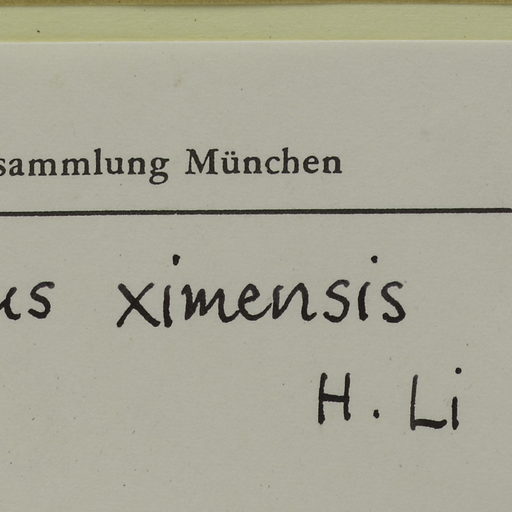 sammlung München
us ximensis
H. Li